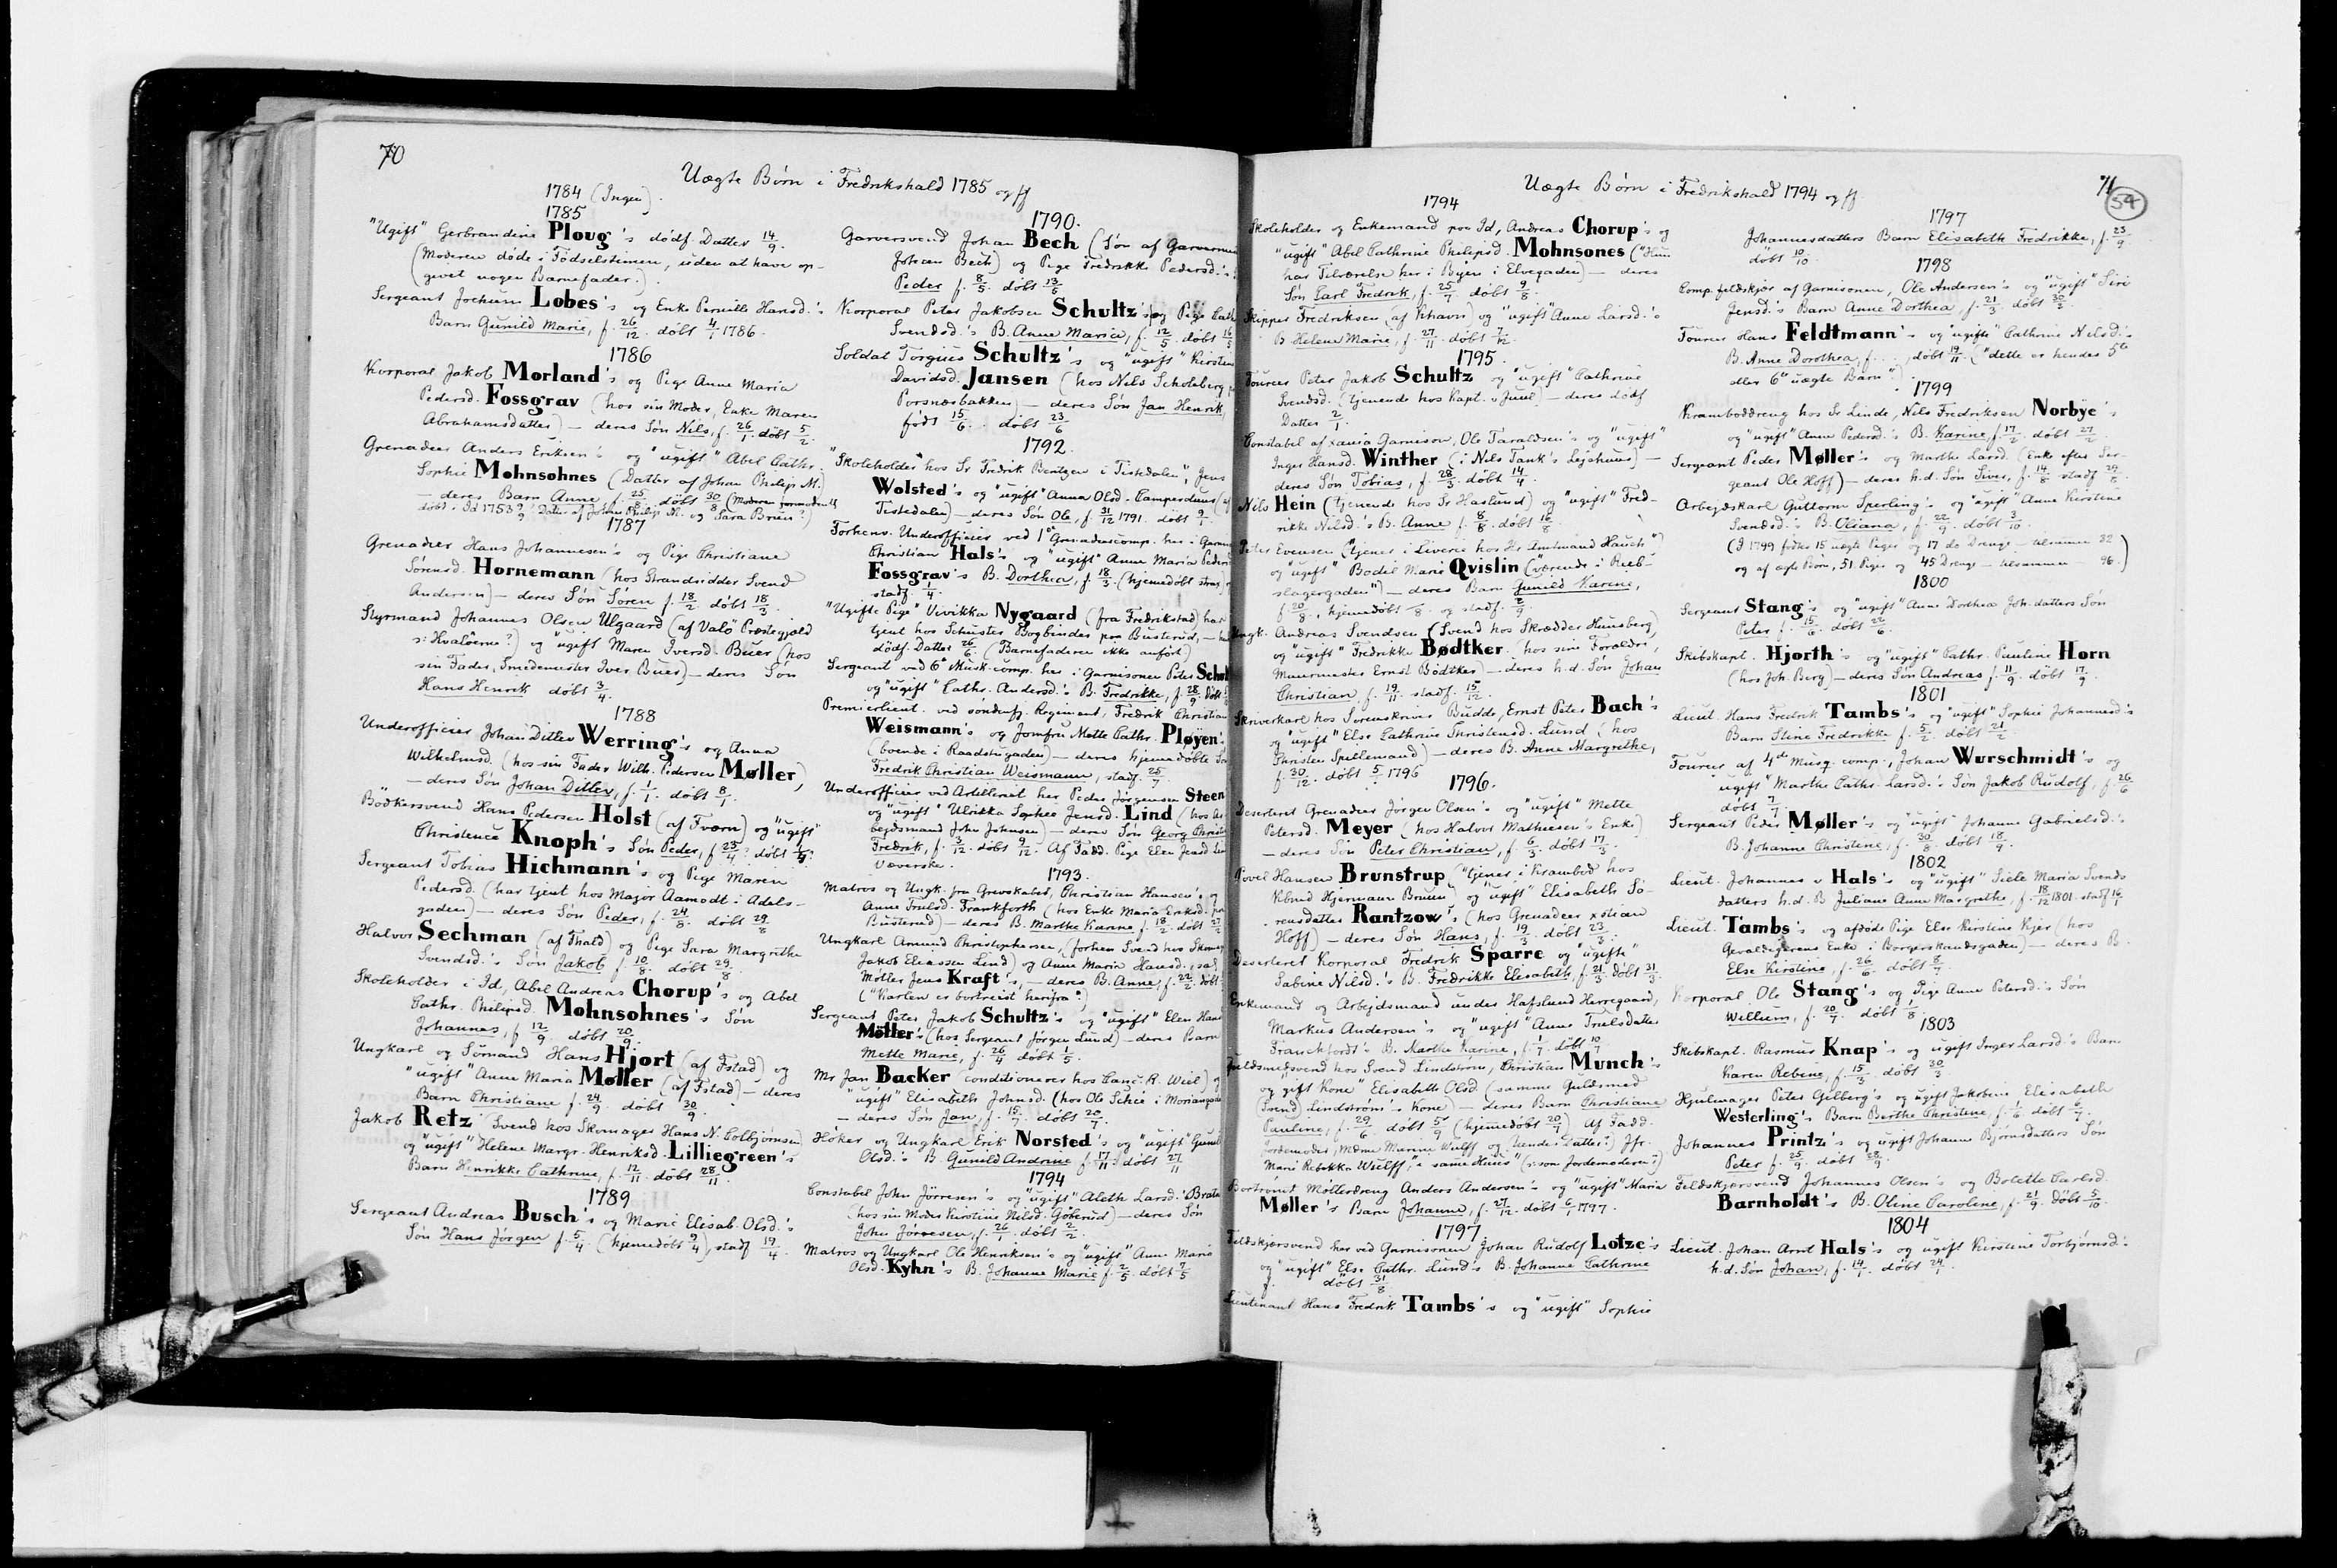 70
Uægte Børn i Fredrikshald 1785 og ff
1784 (Ingen).
1785
"Ugift" Gerbrandine Ploug's dødf. Datter 14/9.
(Moderen døde i Fødselstimen, uden at have op-
givet nogen Barnefader.)
Sergeant Jochum Lobes's og Enke Pernille Hansd.'s
Barn Gunild Marie, f. 26/12 døbt 4/1 1786.
1786
Korporal Jakob Morland's og Pige Anne Maria
Pedersd. Fossgrav (hos sin Moder, Enke Maren
Abrahamsdatter) — deres Søn Nils, f. 26/1. døbt 5/2.
Grenadeer Anders Eriksen's og "ugift" Abel Cathr.
Sophie Mohnsohnes (Datter af Johan Philip M.)
— deres Barn Anne, f. 25/8 døbt 30/8 (Moderen formodentlig
døbt i Id 1753 Datter af Johan Philip M. og Sara Bruun?)
1787
Grenadier Hans Johannesen's og Pige Christiane
Sørensd. Hornemann (hos Strandsidder Svend
Andersen) — deres Søn Søren f. 18/2 døbt 18/3.
Styrmand Johannes Olsen Ulgaard (af Valö Præstegjæld
ɔ: Hvaløerne?) og "ugift" Maren Iversd. Buer (hos
sin Fader, Smedemester Iver Buer) — deres Søn
Hans Henrik døbt 3/4.
1788
Underofficier Johan Ditlev Werring's og Anna
Wilhelmsd. (hos sin Fader Wilh. Pedersen Møller)
— deres Søn Johan Ditlev, f. 1/1. døbt 8/1.
Bødkersvend Hans Pedersen Holst (af Tværn) og "ugift"
Christence Knoph's Søn Peder, f. 23/4? døbt 1/5?
Sergeant Tobias Hichmann's og Pige Maren
Pedersd. (har tjent hos Major Aamodt i Adels-
gaden) — deres Søn Peder, f. 24/8. døbt 29/8
Halvor Sechman (af Fhald) og Pige Sara Margrethe
Svendsd.'s Søn Jakob f. 10/8. døbt 29/8
Skoleholder i Id, Abel Andreas Chorup's og Abel
Cathr. Philipsd. Mohnsohnes's Søn
Johannes, f. 12/9. døbt 20/9.
Ungkarl og Sømand Hans Hjort (af Fstad) og
"ugift" Anne Maria Møller (af Fstad) — deres
Barn Christiane f. 24/9. døbt 30/9.
Jakob Retz (Svend hos Skomager Hans N. Colbjørnsen)
og "ugift" Helene Margr. Henriksd. Lilliegreen's
Barn Henrikke Cathrine, f. 12/11. døbt 28/11.
1789
Sergeant Andreas Busch's og Marie Elisab. Olsd.'s
Søn Hans Jørgen f. 5/4. (hjemedøbt 9/4), stadf 19/4.
1790.
Garversvend Johan Bech (Søn af Garvermes
Johan Bech) og Pige Fredrikke Pedersd.'s
Peder f. 8/5. døbt 13/5
Korporal Peter Jakobsen Schultz's og Pige Cath
Svendsd.'s B. Anne Maria, f. 12/5. døbt 16/5
Soldat Torgius Schultz's og "ugift" Kirsten
Davidsd. Jansen (hos Nils Scholeberg p
Porsnæsbakken) — deres Søn Jan Henrik,
født 15/6. døbt 23/6
1792.
"Skoleholder" hos Sr Fredrik Berntzen i Tistedalen", Jens
Wolsted's og "ugift" Anna Olsd. Camperduus (af
Tistedalen) — deres Søn Ole, f. 31/12 1791. døbt 9/1.
Forhenv. Underofficier ved 1ste Grenadeercomp. her i Garnis
Christian Hals's og "ugift" Anne Maria Peders
Fossgrav's B. Dorthea, f 18/3. (hjemedøbt strax)
stadf. 1/4.
"Ugifte Pige" Vivikka Nygaard (fra Fredrikstad) har
tjent hos Schuster Bogbinder paa Busterud, —
dødf. Datter 26/6. (Barnefaderen ikke anført)
Sergeant ved 6te Musk. comp. her i Garnisonen Peter Schul
og "ugift" Cathr. Andersd.'s B. Fredrikke, f. 28/9. døbt
Premierlieut. ved søndenfj. Regiment, Fredrik Christian
Weismann's og Jomfru Mette Cathr. Pløyen's
(boende i Raadstugaden) — deres hjemedøbte Sø
Fredrik Christian Weismann, stadf. 25/7.
Underofficier ved Artilleriet her Peder Jørgensen Steen
og "ugift" Ulrikka Sophie Jensd. Lind (hos Ar
bejdsmand John Johnsen) — deres Søn Georg Christi
Fredrik, f. 3/12. døbt 9/12. Af Fadd. Pige Elen Jensd Lin
Væverske.
1793.
Matros og Ungk. fra Grevskabet, Christian Hansen's og
Anne Trulsd. Frankforth (hos Enke Maria Eriksd. paa
Busterud) — deres B. Marthe Karine f. 18/2. døbt 27/2
Ungkarl Amund Christophersen, (forhen Svend hos Skomag
Jakob Eliassen Lind) og Anne Maria Hansd., sal.
Møller Jens Kraft's, — deres B. Anne, f. 22/2. døbt
("Karlen er bortreist herifra".)
Sergeant Peter Jakob Schultz's og "ugift" Elen Hans
Möller's (hos Sergeant Jørgen Lund) — deres Barn
Mette Marie, f. 26/4 døbt 1/5.
Mr Jan Backer (conditionerer hos Canc. R. Weil) og
"ugift" Elisabeth Johnsd. (hos Ole Schie i Moriangade
— deres Søn Jan, f. 15/7 døbt 20/7.
Høker og Ungkarl Erik Norsted's og "ugift" Gunil
Olsd.'s B. Gunild Andrine f. 17/11. døbt 27/11
1794
Constabel John Jørresen's og "ugift" Aleth Larsd. Brate
(hos sin Moder Kirstine Nilsd. Gøberud) — deres Søn
John Jørresen, f. 26/1. døbt 2/2.
Matros og Ungkarl Ole Henriksen's og "ugift" Anne Marie
Olsd. Kyhn's B. Johanne Marie f. 2/5. døbt 7/5
71
54
Uægte Børn i Fredrikshald 1794 og ff
1794
Skoleholder og Enkemand paa Id, Andreas Chorup's og
"ugift" Abel Cathrine Philipsd. Mohnsones ("Hun
har Tilværelse her i Byen i Elvegaden) — deres
Søn Carl Fredrik, f. 25/7. døbt 9/8.
Skipper Fredriksen (af Khavn) og "ugift" Anne Larsd.'s
B. Helene Marie, f. 27/11. døbt 7/12.
1795.
Foureer Peter Jakob Schultz og "ugift" Cathrine
Svendsd. (tjenende hos Kapt. v Juul) — deres dødf
Datter 2/1.
Constabel af Xania Garnison, Ole Taraldsen's og "ugift"
Inger Hansd. Winther (i Nils Tank's Lejehuus) —
deres Søn Tobias, f. 28/3. døbt 14/4.
Nils Hein (tjenende hos Sr Haslund) og "ugift" Fred-
rikke Nilsd.'s B. Anne f. 8/8. døbt 16/8.
Peter Evensen ("tjener i Liverie hos Hr Amtmand Hauch")
og "ugift" Bodil Marie Qvislin ("værende i Reeb-
slagergaden") — deres Barn Gunild Karine,
f 20/8., hjemedøbt /8. og stadf. 2/9.
Ungk. Andreas Svendsen (Svend hos Skrædder Hunsberg)
og "ugift" Fredrikke Bødtker (hos sine Forældre,
Muurmester Ernst Bødtker) — deres h.d. Søn Johan
Christian f. 19/11. stadf. 15/12.
Skriverkarl hos Sorenskriver Budde, Ernst Peter Bach's
og "ugift" Else Cathrine Thristensd. Lund (hos
Christen Spillemand) — deres B. Anne Margrethe,
f. 30/12. døbt 5/1 1796
1796.
Deserteret Grenadeer Jørgen Olsen's og "ugift" Mette
Petersd. Meyer (hos Halvor Mathiesen's Enke)
— deres Søn Peter Christian, f. 6/3. døbt 17/3.
Povel Hansen Brunstrup ("tjener i Krambod hos
Kbmd Hjermann Bruun) og "ugift" Elisabeth Sø-
rensdatter Rantzow's (hos Grenadeer Xstian
Hoff) — deres Søn Hans, f. 19/3. døbt 23/3.
Deserteret Korporal Fredrik Sparre og "ugifte"
Sabine Nilsd.'s B. Fredrikke Elisabeth f. 21/3. døbt 31/3.
Enkemand og Arbejdsmand under Hafslund Herregaard,
Markus Andersen's og "ugift" Anne Trulsdatter
Franckfordt's B. Marthe Karine, f. 1/7. døbt 10/7.
Guldsmedsvend hos Svend Lindstrøm, Christian Munch's
og "gift Kone" Elisabeth Olsd. (samme Guldsmed
(Svend) Lindstrøm's Kone) — deres Barn Christiane
Pauline, f. 29/6 døbt 5/9 (hjemedøbt 20/7) Af Fadd.
Jordemoder, Mdme Marine Wulff og hendes Datter?) Jfr.
Marie Rebekka Wulff, "i samme Huus" (ɔ: som Jordemoderen?)
Bortrømt Møllerdreng Anders Andersen's og "ugift" Maria
Møller's Barn Johanne, f. 27/12. døbt 6/1 1797.
1797.
Feldskjærsvend her ved Garnisonen Johan Rudolf Lotze's
og "ugift" Else Cathr. Lund's B. Johanne Cathrine
f. døbt 31/8
Lieutenant Hans Fredrik Tambs's og "ugift" Sophie
1797
Johannesdatters Barn Elisabeth Fredrikke, f. 23/9.
døbt 10/10.
1798
Comp. feldskjær af Garnisonen, Ole Andersen's og "ugift" Siri
Jensd.'s Barn Anne Dorthea, f. 21/3. døbt 30/3.
Fourer Hans Feldtmann's og "ugifte" Cathrine Nilsd.'s
B. Anne Dorothea, f. . . , døbt 19/11. ("dette er hendes 5te
eller 6te uægte Barn".)
1799
Kramboddreng hos Sr Linde, Nils Fredriksen Norbye's
og "ugift" Anne Pedersd.'s B. Karine, f. 17/2. døbt 27/2.
Sergeant Peder Møller's og Marthe Larsd. (Enke efter Ser-
geant Ole Hoff) — deres h.d. Søn Siver, f. 14/8. stadf 29/8.
Arbejdskarl Guttorm Sperling's og "ugift" Anne Kirstine
Svendsd.'s B. Oliana, f. 22/9. døbt 3/10.
(I 1799 fødtes 15 uægte Piger og 17 do Drenge — tilsamen 32
og af ægte Børn, 51 Piger og 45 Drenge — tilsammen — 96.)
1800
Sergeant Stang's og "ugift" Anne Dorthea Joh. datters Søn
Peter f. 15/6. døbt 22/6.
Skibskapt. Hjorth's og "ugift" Cathr. Pauline Horn
(hos Joh. Berg) — deres Søn Andreas f. 11/9. døbt 17/9.
1801
Lieut. Hans Fredrik Tambs's og "ugift" Sophie Johannesd.'s
Barn Stine Fredrikke f. 5/2. døbt 21/2
Fourer af 4de Musq. comp., Johan Wurschmidt's og
"ugift" Marthe Cathr. Larsd.'s Søn Jakob Rudolf, f. 26/6
døbt 7/7.
Sergeant Peder Møller's og "ugift" Johanne Gabrielsd.'s
B. Johanne Christine, f. 30/8. døbt 18/9.
1802
Lieut. Johannes v Hals's og "ugift" Siele Maria Svends
datters h.d. B. Juliane Anne Margrethe, f. 18/12 1801. stadf 16/1
Lieut. Tambs's og afdøde Pige Else Kirstine Kjer (hos
Gevaldigerens Enke i Borgerskandsgaden) — deres B.
Else Kirstine, f. 26/6. døbt 8/7.
Korporal Ole Stang's og Pige Anne Petersd.'s Søn
Willum, f. 20/7. døbt 1/8.
1803
Skibskapt. Rasmus Knap's og ugift Inger Larsd.'s Barn
Karen Rebine, f. 15/3. døbt 30/3.
Hjulmager Peter Gilberg's og ugift Jakobine Elisabeth
Westerling's Barn Berthe Christine, f. 1/6. døbt 6/7.
Johannes Printz's og ugift Johanne Bjørnsdatters Søn
Peter f. 25/9. døbt 28/9.
Feldskjærsvend Johannes Olsen's og Bolette Carlsd.
Barnholdt's B. Oline Caroline, f. 21/9. døbt 5/10.
1804
Lieut. Johan Arnt Hals's og ugift Kirstine Torbjørnsd.'s
h.d. Søn Johan, f. 14/1. døbt 24/1.